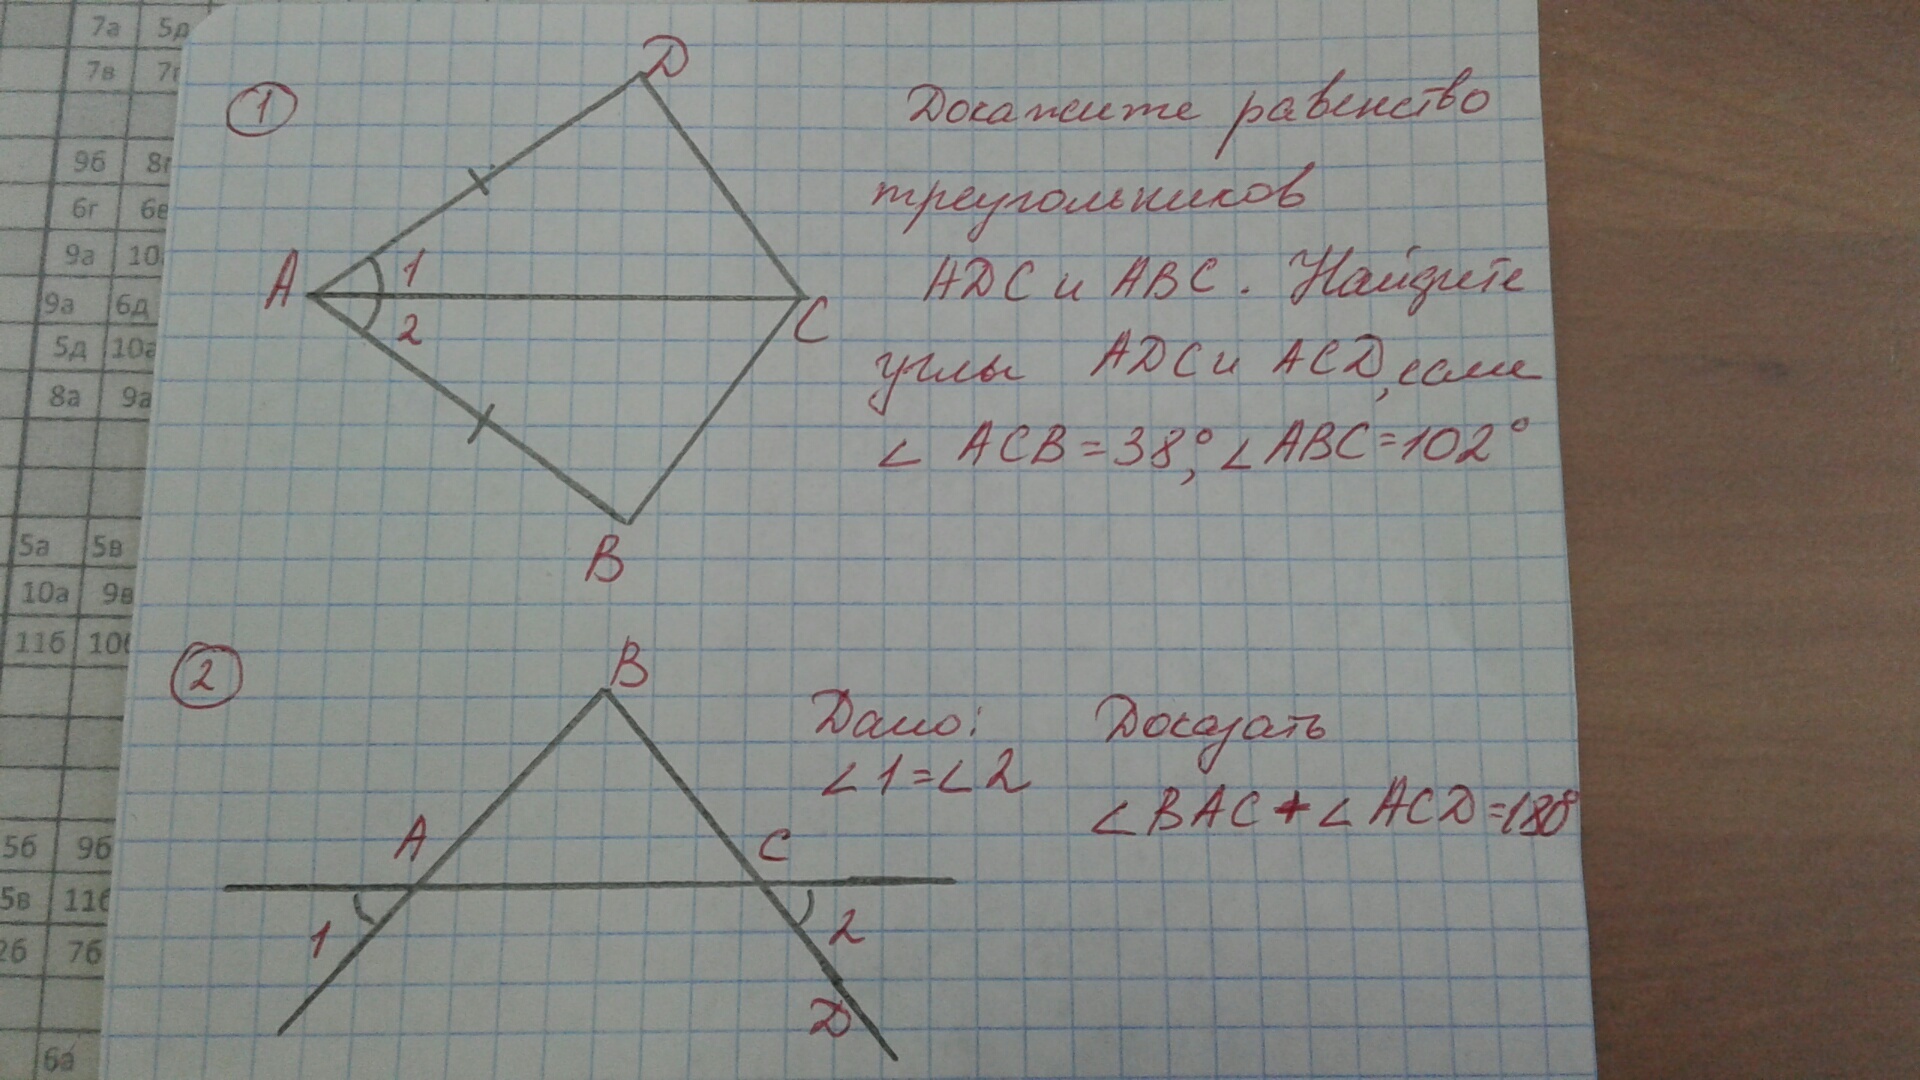 7а 5д
7в
9б
6г
9а 10
9а 6д
5д 10а
8а 9а
5а 5в
10а 9в
11б
5б 9б
5в
7б
6а
1
D
A 1
2
C
B
Докажите равенство
треугольников
ADC и ABC. Найдите
углы ADC и ACD, если
∠ ACB=38°; ∠ABC=102°
2
B
A C
1 2
D
Дано:
∠1=∠2
Доказать
∠BAC+∠ACD=180